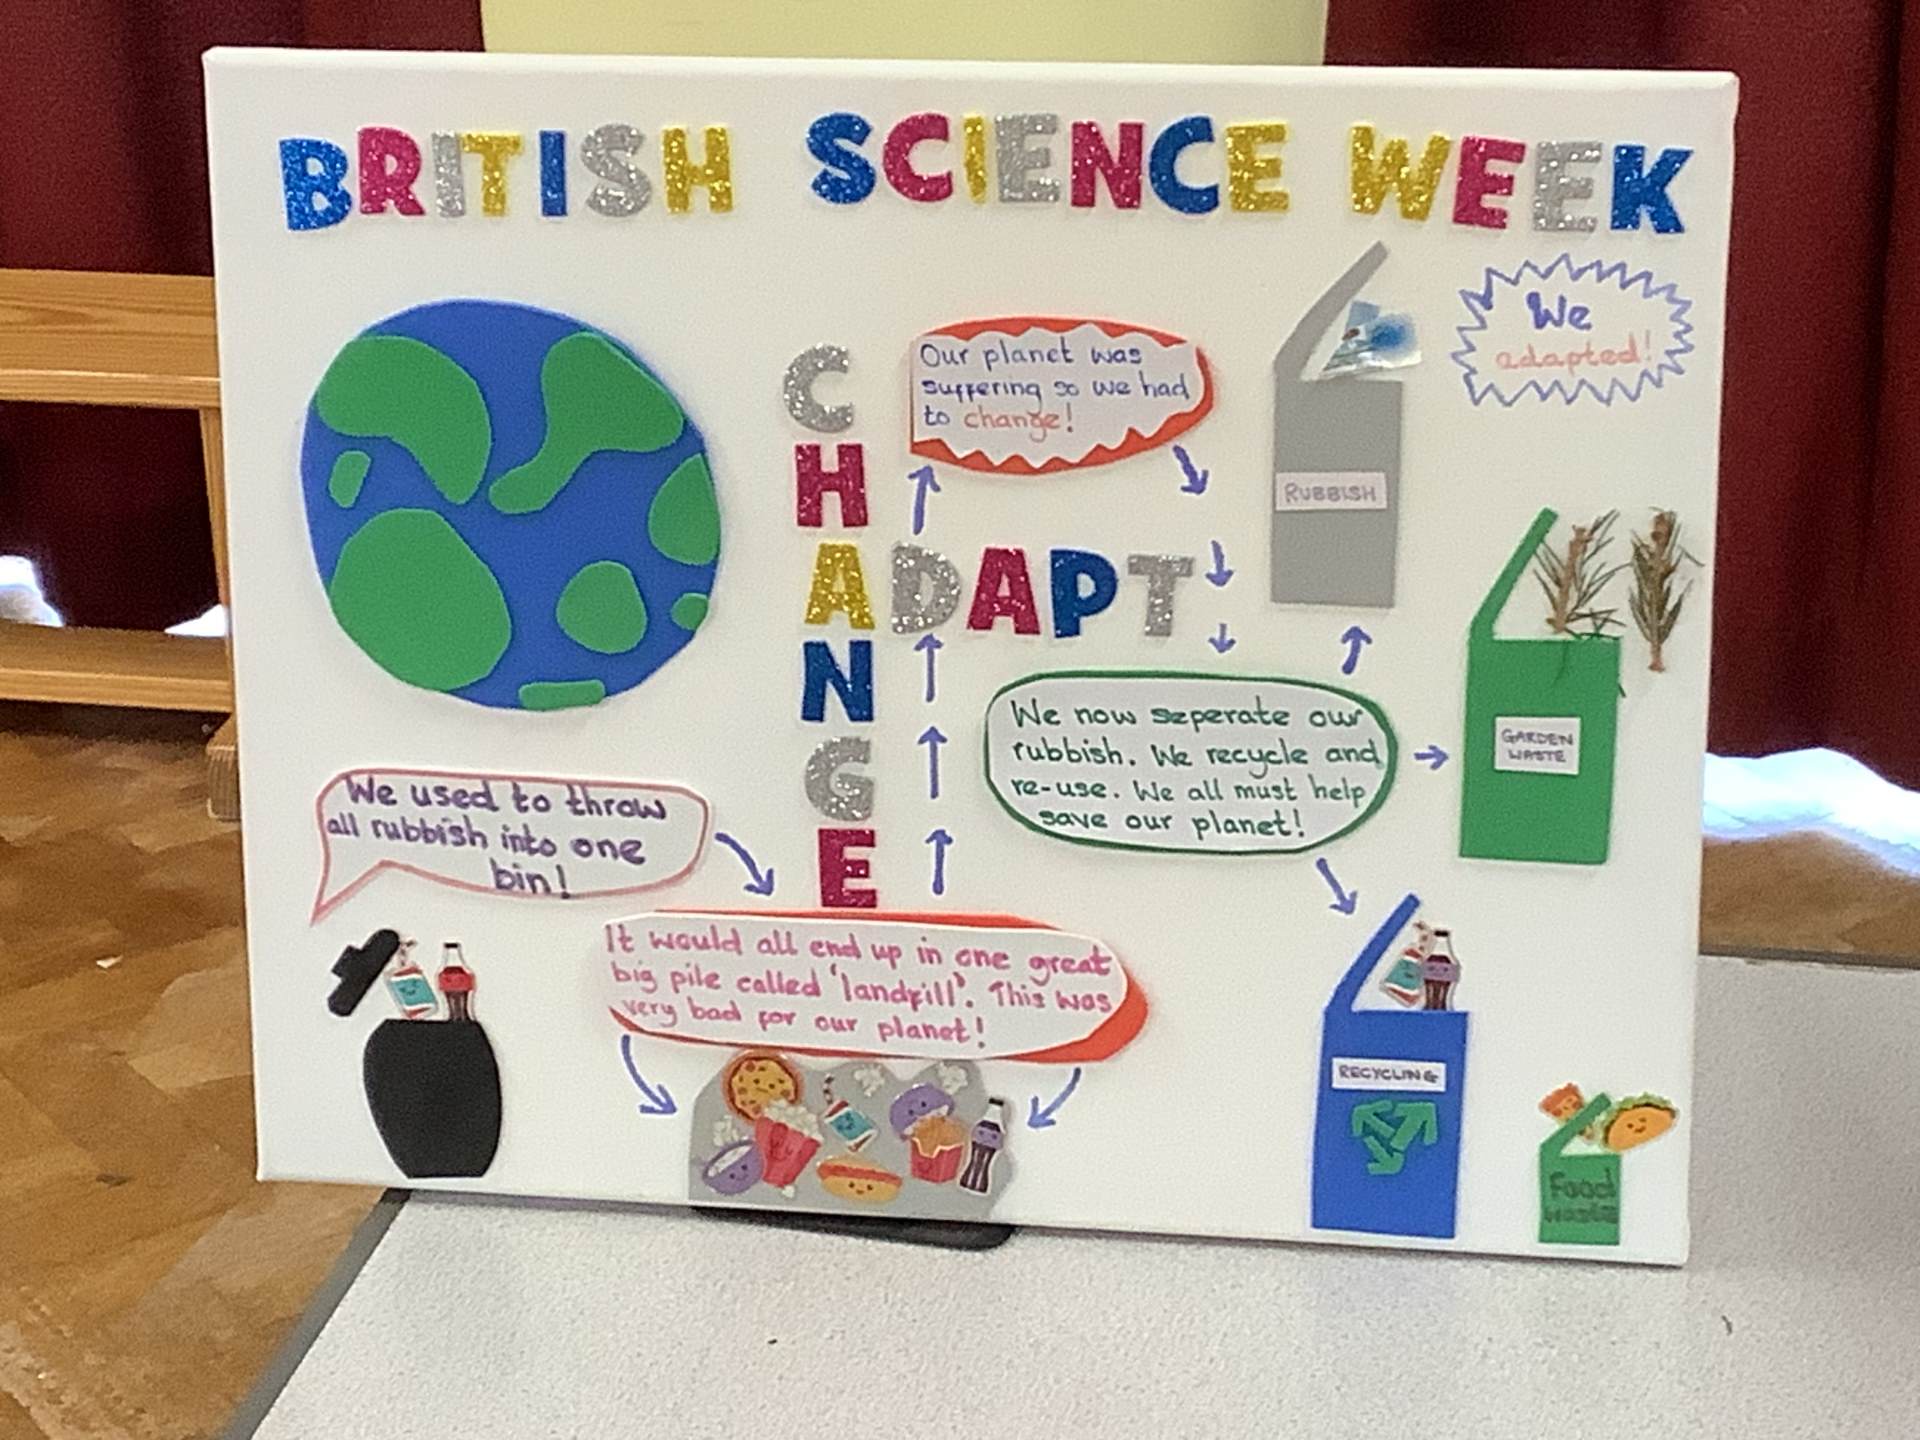 BRITISH SCIENCE WEEK
We
adapted!
Our planet was
suffering so we had
to change!
CHANGE
ADAPT
RUBBISH
We now seperate our
rubbish. We recycle and
re-use. We all must help
save our planet!
GARDEN
WASTE
We used to throw
all rubbish into one
bin!
It would all end up in one great
big pile called 'landfill'. This was
very bad for our planet!
RECYCLING
Food
Waste